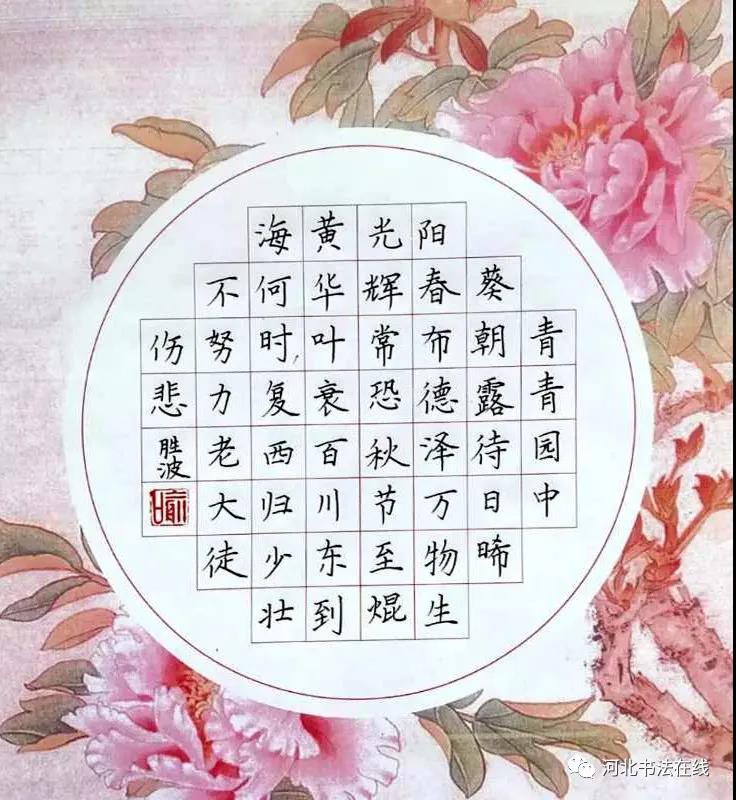 青青园中
葵朝露待日晞
阳春布德泽万物生
光辉常恐秋节至焜
黄华叶衰百川东到
海何时复西归少壮
不努力老大徒
伤悲
胜波
河北书法在线